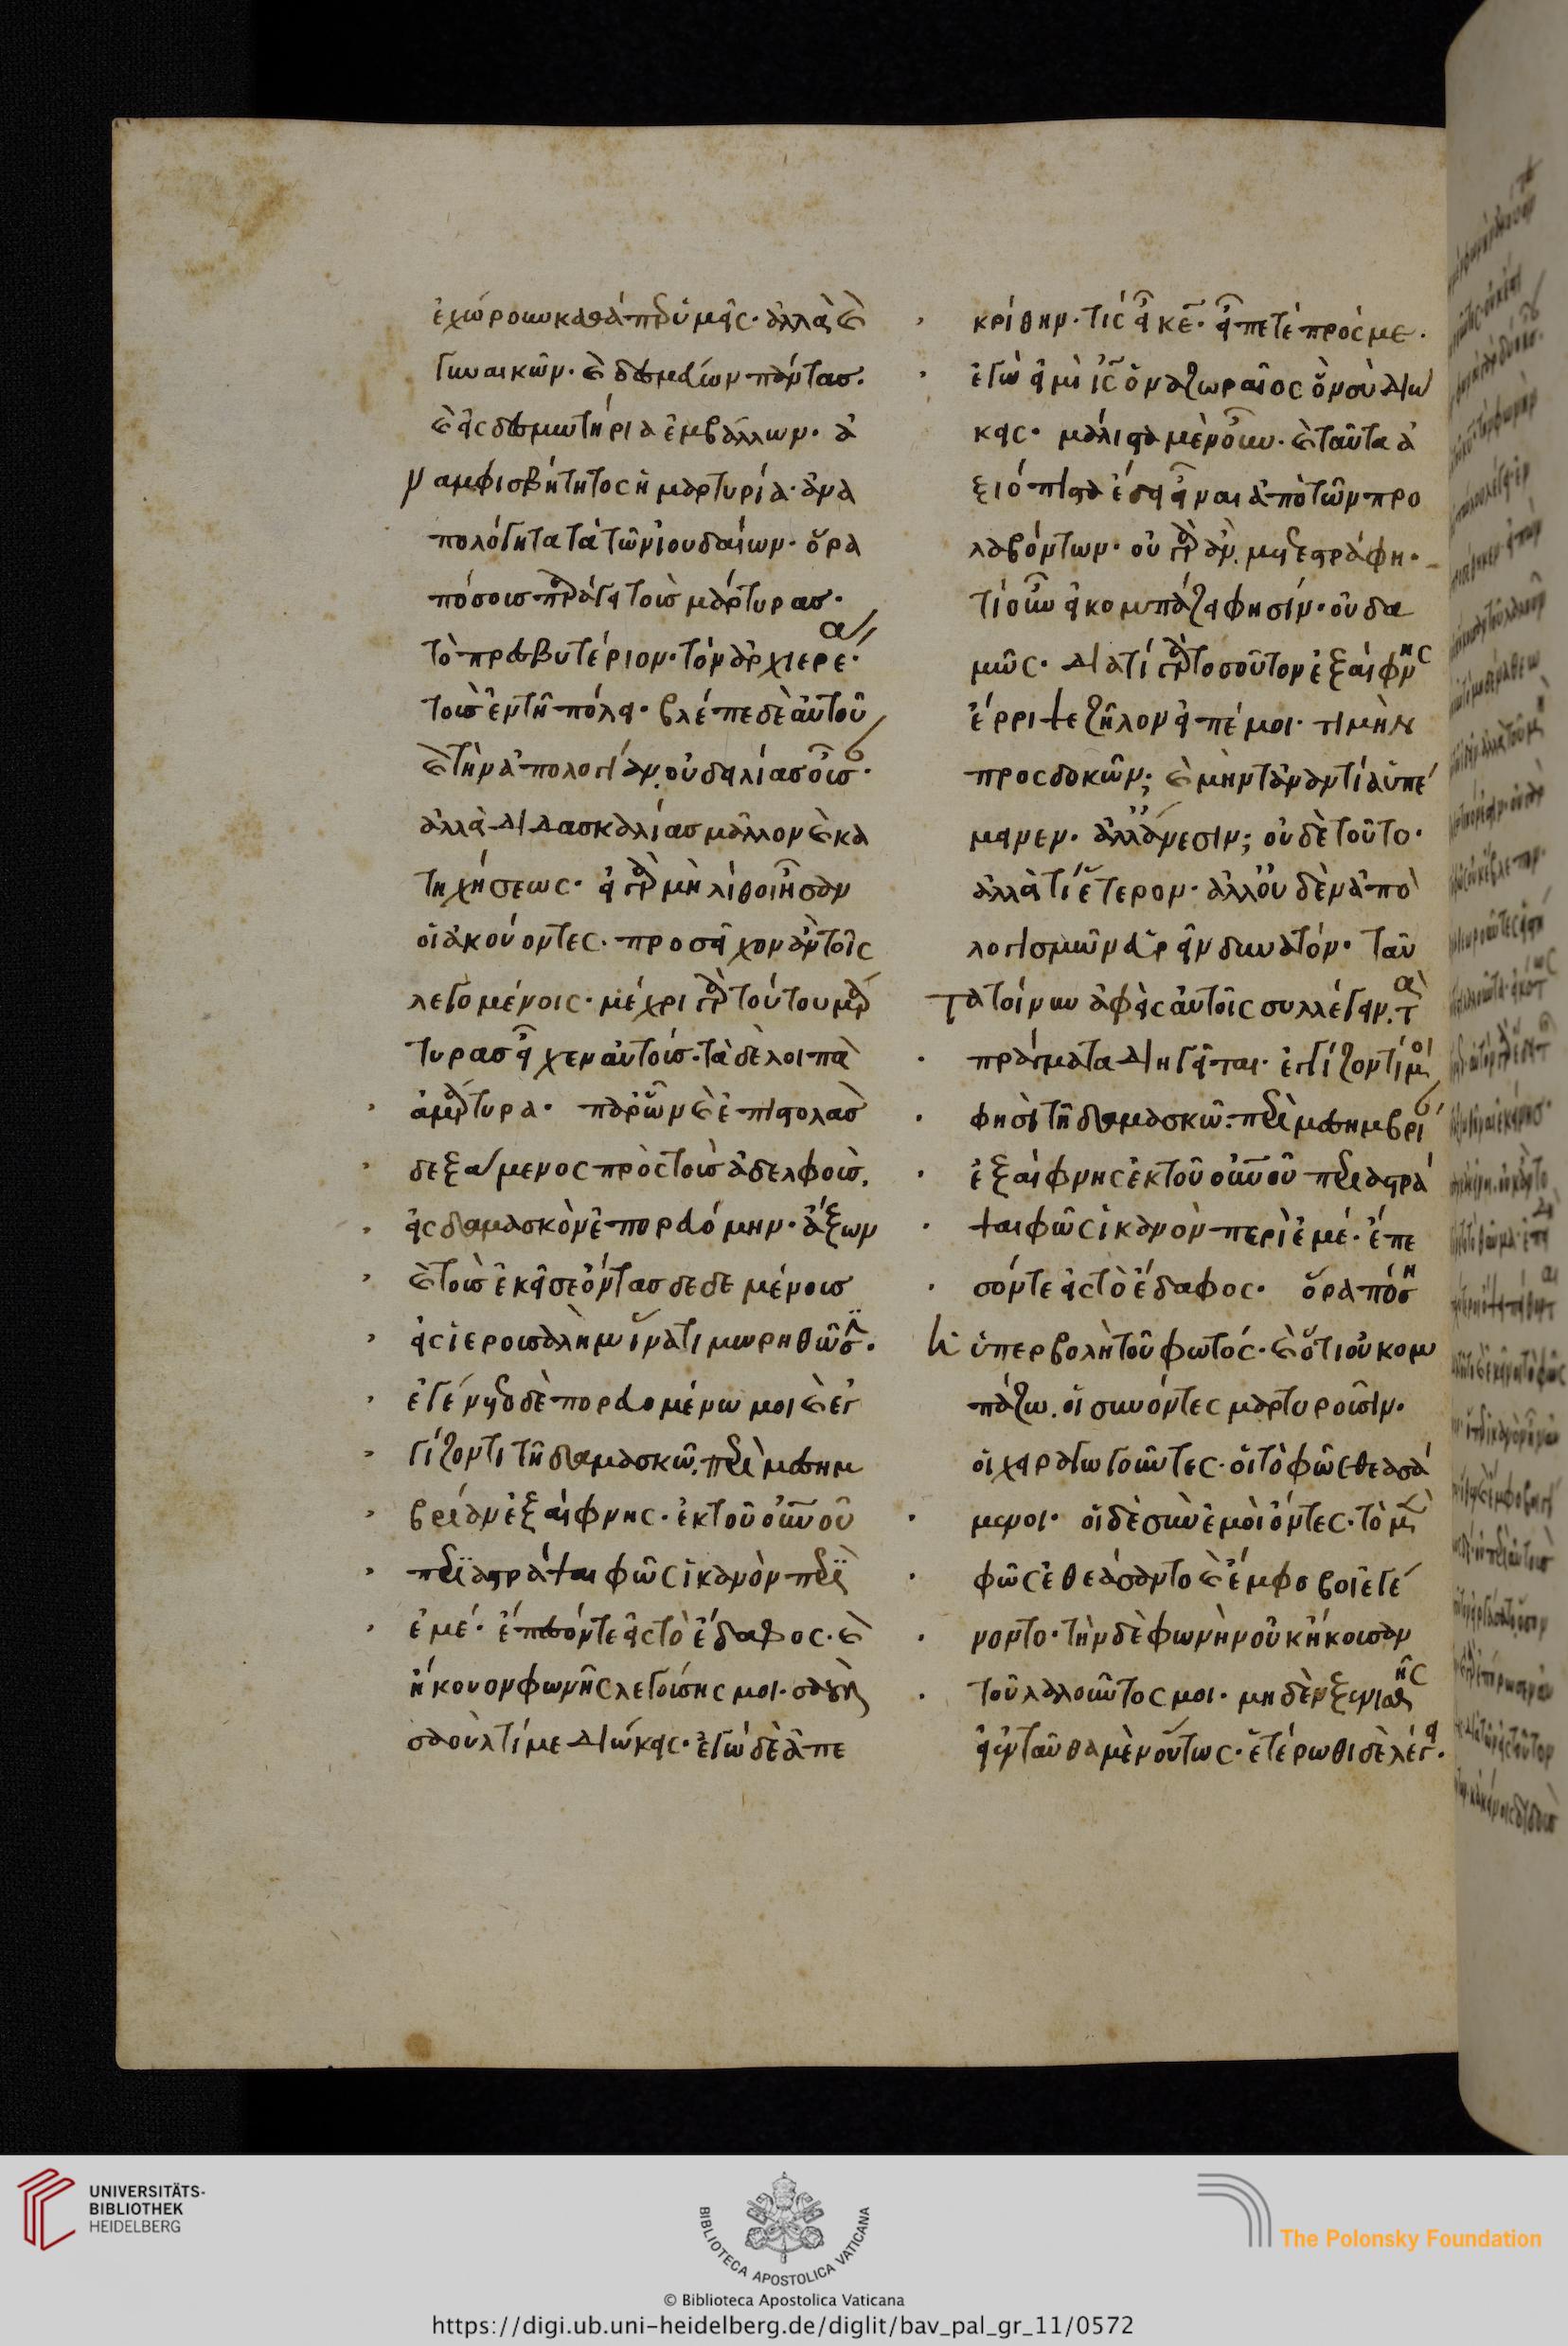 ἐχώρουν καθάπερ ὑμεῖς· ἀλλὰ καὶ
γυναικῶν· καὶ δεσμεύων πάντας.
καὶ εἰς δεσμωτήρια ἐμβάλλων· ἀ
ναμφισβήτητος ἡ μαρτυρία· ἀνα
πολόγητα τὰ τῶν ἰουδαίων· ὅρα
πόσους παράγει τοὺς μάρτυρας·
τὸ πρεσβυτέριον· τὸν ἀρχιερέα·
τοὺς ἐν τῇ πόλει· βλέπε δὲ αὐτοῦ
καὶ τὴν ἀπολογίαν· οὐ δειλίας οὖσαν·
ἀλλὰ διδασκαλίας μᾶλλον καὶ κα
τηχήσεως· εἰ γὰρ μὴ λίθοι ἦσαν
οἱ ἀκούοντες· προσεῖχον ἂν τοῖς
λεγομένοις· μέχρι γὰρ τούτου μάρ
τυρας εἶχεν αὐτούς· τὰ δὲ λοιπὰ
ἀμάρτυρα· παρ' ὧν καὶ ἐπιστολὰς
δεξάμενος πρὸς τοὺς ἀδελφούς,
εἰς δαμασκὸν ἐπορευόμην· ἄξων
καὶ τοὺς ἐκεῖσε ὄντας δεδεμένους
εἰς ἱερουσαλὴμ ἵνα τιμωρηθῶσιν·
ἐγένετο δὲ πορευομένω μοι καὶ ἐγ
γίζοντι τῇ δαμασκῶ, περὶ μεσημ
βρίαν ἐξαίφνης· ἐκ τοῦ οὐνοῦ
περιαστράψαι φῶς ἱκανὸν περὶ
ἐμέ· ἔπεσόν τε εἰς τὸ ἔδαφος· καὶ
ἤκουον φωνῆς λεγούσης μοι· σαοὺλ
σαοὺλ τί με διώκεις· ἐγὼ δὲ ἀπε
κρίθην· τίς εἶ κε· εἶπέ τε πρός με·
ἐγώ εἰμι ις ὁ ναζωραῖος ὃν σὺ διώ
κεις· μάλιστα μὲν οὖν· καὶ ταῦτα ἀ
ξιόπιστα ἔδει εἶναι ἀπὸ τῶν προ
λαβόντων· οὐ γὰρ ἂν μετεστράφη·
τί οὖν εἰ κομπάζει φησίν· οὐδα
μῶς· διατί γὰρ τοσοῦτον ἐξαίφνης
ἔρριψε ζῆλον εἰπέ μοι· τιμὴν
προσδοκῶν; καὶ μὴν τἀναντία ὑπέ
μεινεν· ἀλλ' ἄνεσιν; οὐδὲ τοῦτο·
ἀλλά τι ἕτερον· ἀλλ' οὐδὲν ἀπὸ
λογισμῶν εὑρεῖν δυνατόν· ταῦ
τα τοίνυν ἀφεὶς αὐτοῖς συλλέγειν· τὰ
πράγματα διηγεῖται· ἐγγίζοντί μοι
φησὶ τῇ δαμασκῶ· περὶ μεσημβρίαν
ἐξαίφνης ἐκ τοῦ οὐνοῦ περιαστρά
ψαι φῶς ἱκανὸν περὶ ἐμέ· ἔπε
σόν τε εἰς τὸ ἔδαφος· ὅρα πόση
ἡ ὑπερβολὴ τοῦ φωτός· καὶ ὅτι οὐ κομ
πάζω. οἱ συνόντες μαρτυροῦσιν·
οἱ χειραγωγοῦντες· οἱ τὸ φῶς θεασά
μενοι· οἱ δὲ σὺν ἐμοὶ ὄντες· τὸ μὲν
φῶς ἐθεάσαντο καὶ ἔμφοβοι ἐγέ
νοντο· τὴν δὲ φωνὴν οὐκ ἤκουσαν
τοῦ λαλοῦντός μοι· μηδὲν ξενισθῇς
εἰ ἐνταῦθα μὲν οὕτως· ἑτέρωθι δὲ λέγει·
UNIVERSITÄTS-
BIBLIOTHEK
HEIDELBERG
BIBLIOTECA APOSTOLICA VATICANA
The Polonsky Foundation
© Biblioteca Apostolica Vaticana
https://digi.ub.uni-heidelberg.de/diglit/bav_pal_gr_11/0572